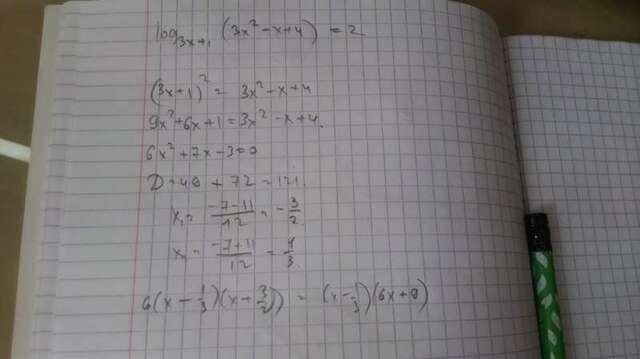 log₃ₓ₊₁ (3x² - x + 4) = 2
(3x+1)² = 3x² - x + 4
9x² + 6x + 1 = 3x² - x + 4.
6x² + 7x - 3 = 0
D = 49 + 72 = 121
x₁ = (-7-11)/12 = -3/2
x₂ = (-7+11)/12 = 1/3
6(x - 1/3)(x + 3/2)) = (x - 1/3)(6x + 9)